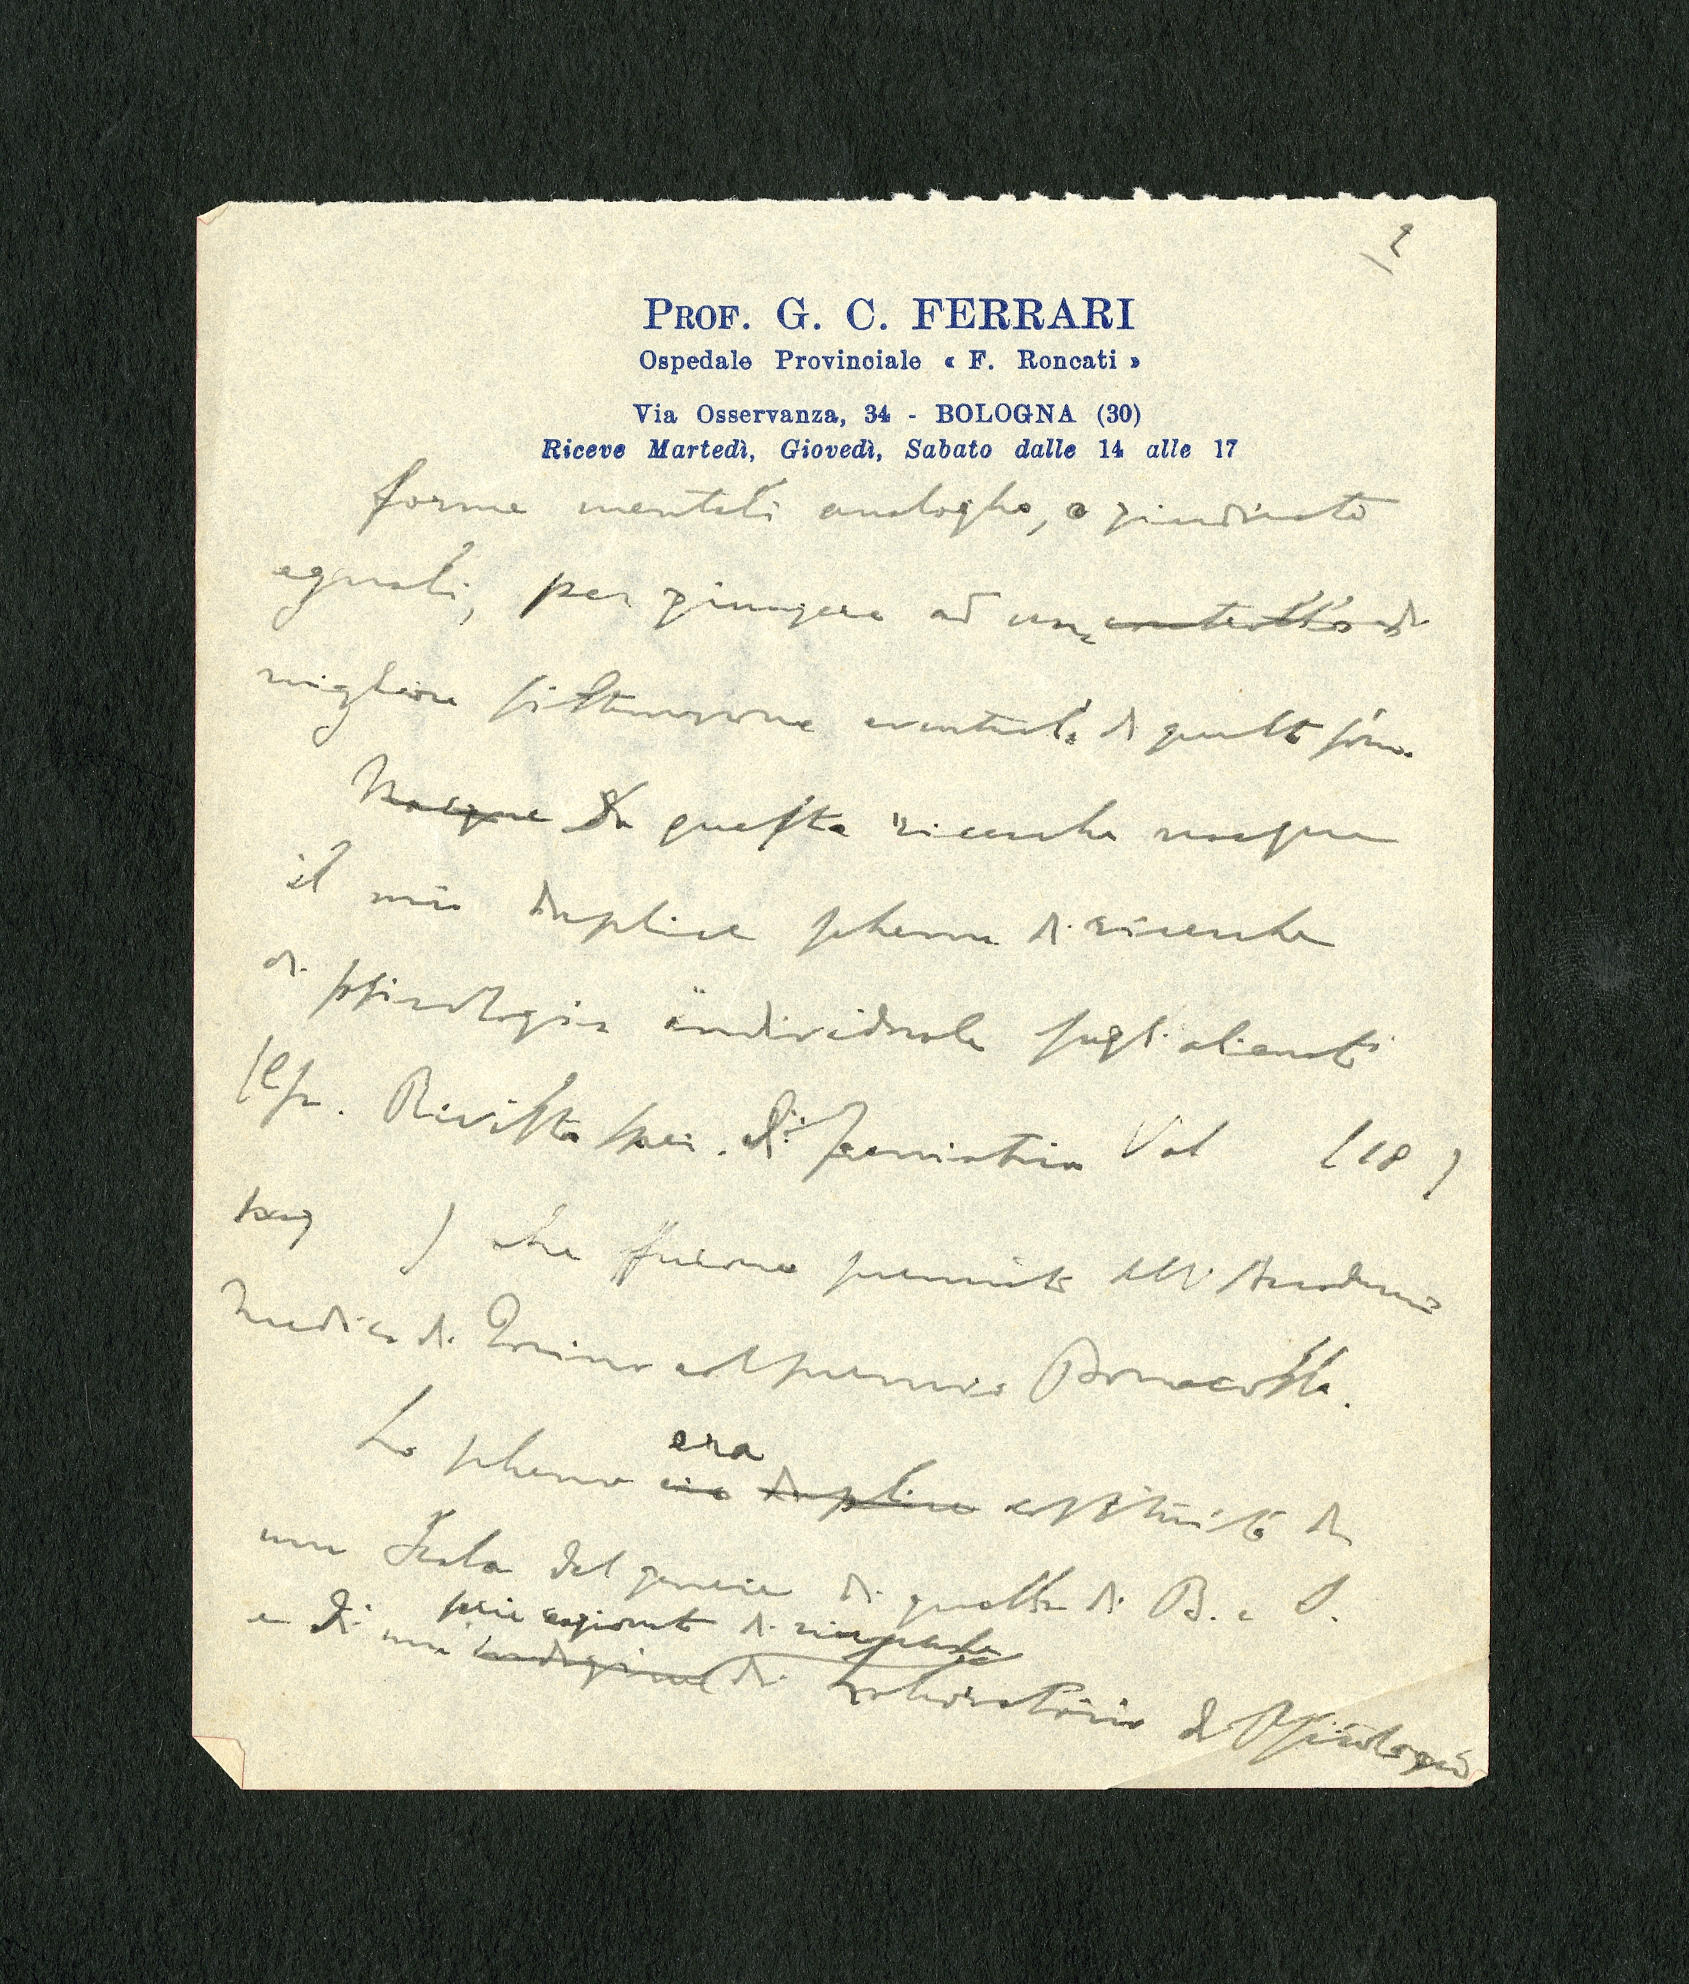 2
PROF. G. C. FERRARI
Ospedale Provinciale « F. Roncati »
Via Osservanza, 34 - BOLOGNA (30)
Riceve Martedì, Giovedì, Sabato dalle 14 alle 17
forme mentali analoghe, o giudicate
eguali, per giungere ad una di
migliore eventuale di quelle forme.
Nacque Da queste ricerche nacque
il mio duplice schema di ricerche
di psicologia individuale sugli alienati
(Cfr. Rivista sper. di freniatria Vol (18 )
pag ) che furono premiate dall' Accademia
Medica di Torino col premio Bonacossa.
Lo schema era duplice costituito da
una Scala del genere di quella di B. e S.
serie di ricerche
e di una indagine di Laboratorio di Psicologia